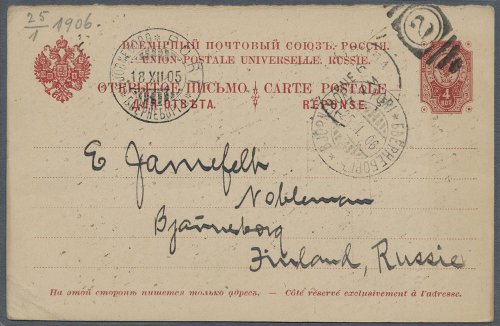 25/1 1906.
ВСЕМІРНЫЙ ПОЧТОВЫЙ СОЮЗЪ. РОССІЯ.
UNION POSTALE UNIVERSELLE. RUSSIE.
ОТКРЫТОЕ ПИСЬМО. CARTE POSTALE
ДЛЯ ОТВѢТА. RÉPONSE.
18 XII 05
БЬЕРНЕБОРГЪ
4
E Jarnefelt
Nobleman
Bjärneborg
Finland, Russie
На этой сторонѣ пишется только адресъ. — Côté réservé exclusivement à l'adresse.